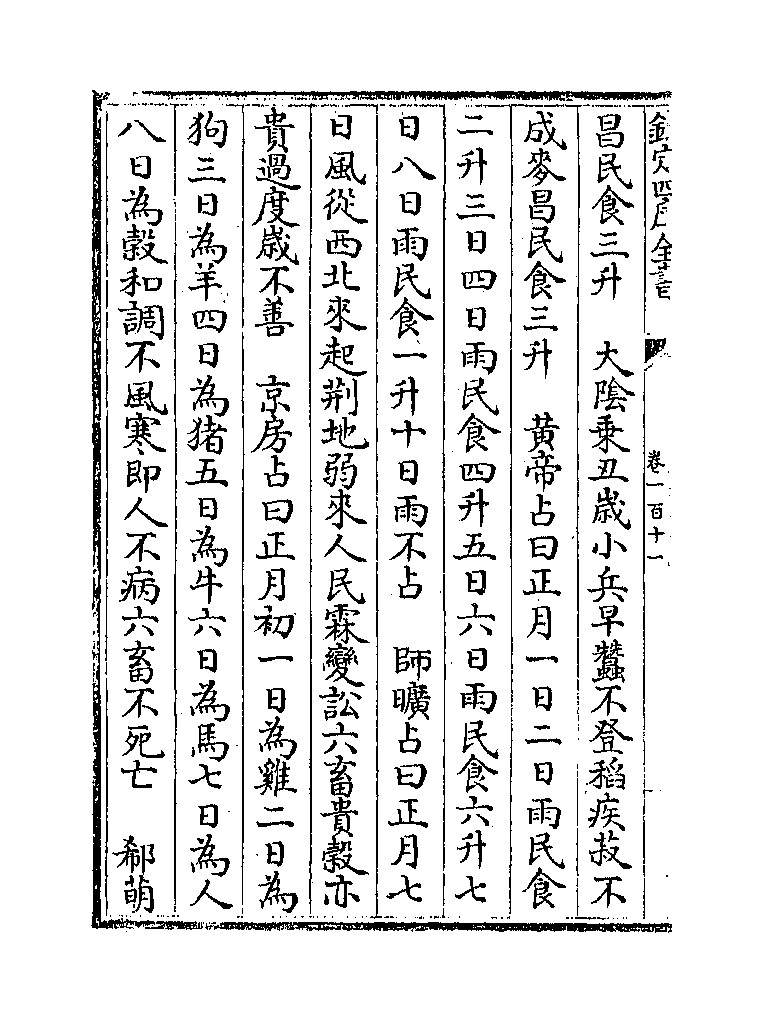 欽定四庫全書
卷一百十一
昌民食三升　大陰乗丑歲小兵早蠶不登稻疾菽不
成麥昌民食三升　黃帝占曰正月一日二日雨民食
二升三日四日雨民食四升五日六日雨民食六升七
日八日雨民食一升十日雨不占　師曠占曰正月七
日風從西北來起荆地弱來人民霖變訟六畜貴穀亦
貴過度歲不善　京房占曰正月初一日為雞二日為
狗三日為羊四日為猪五日為牛六日為馬七日為人
八日為穀和調不風寒即人不病六畜不死亡　郗萌